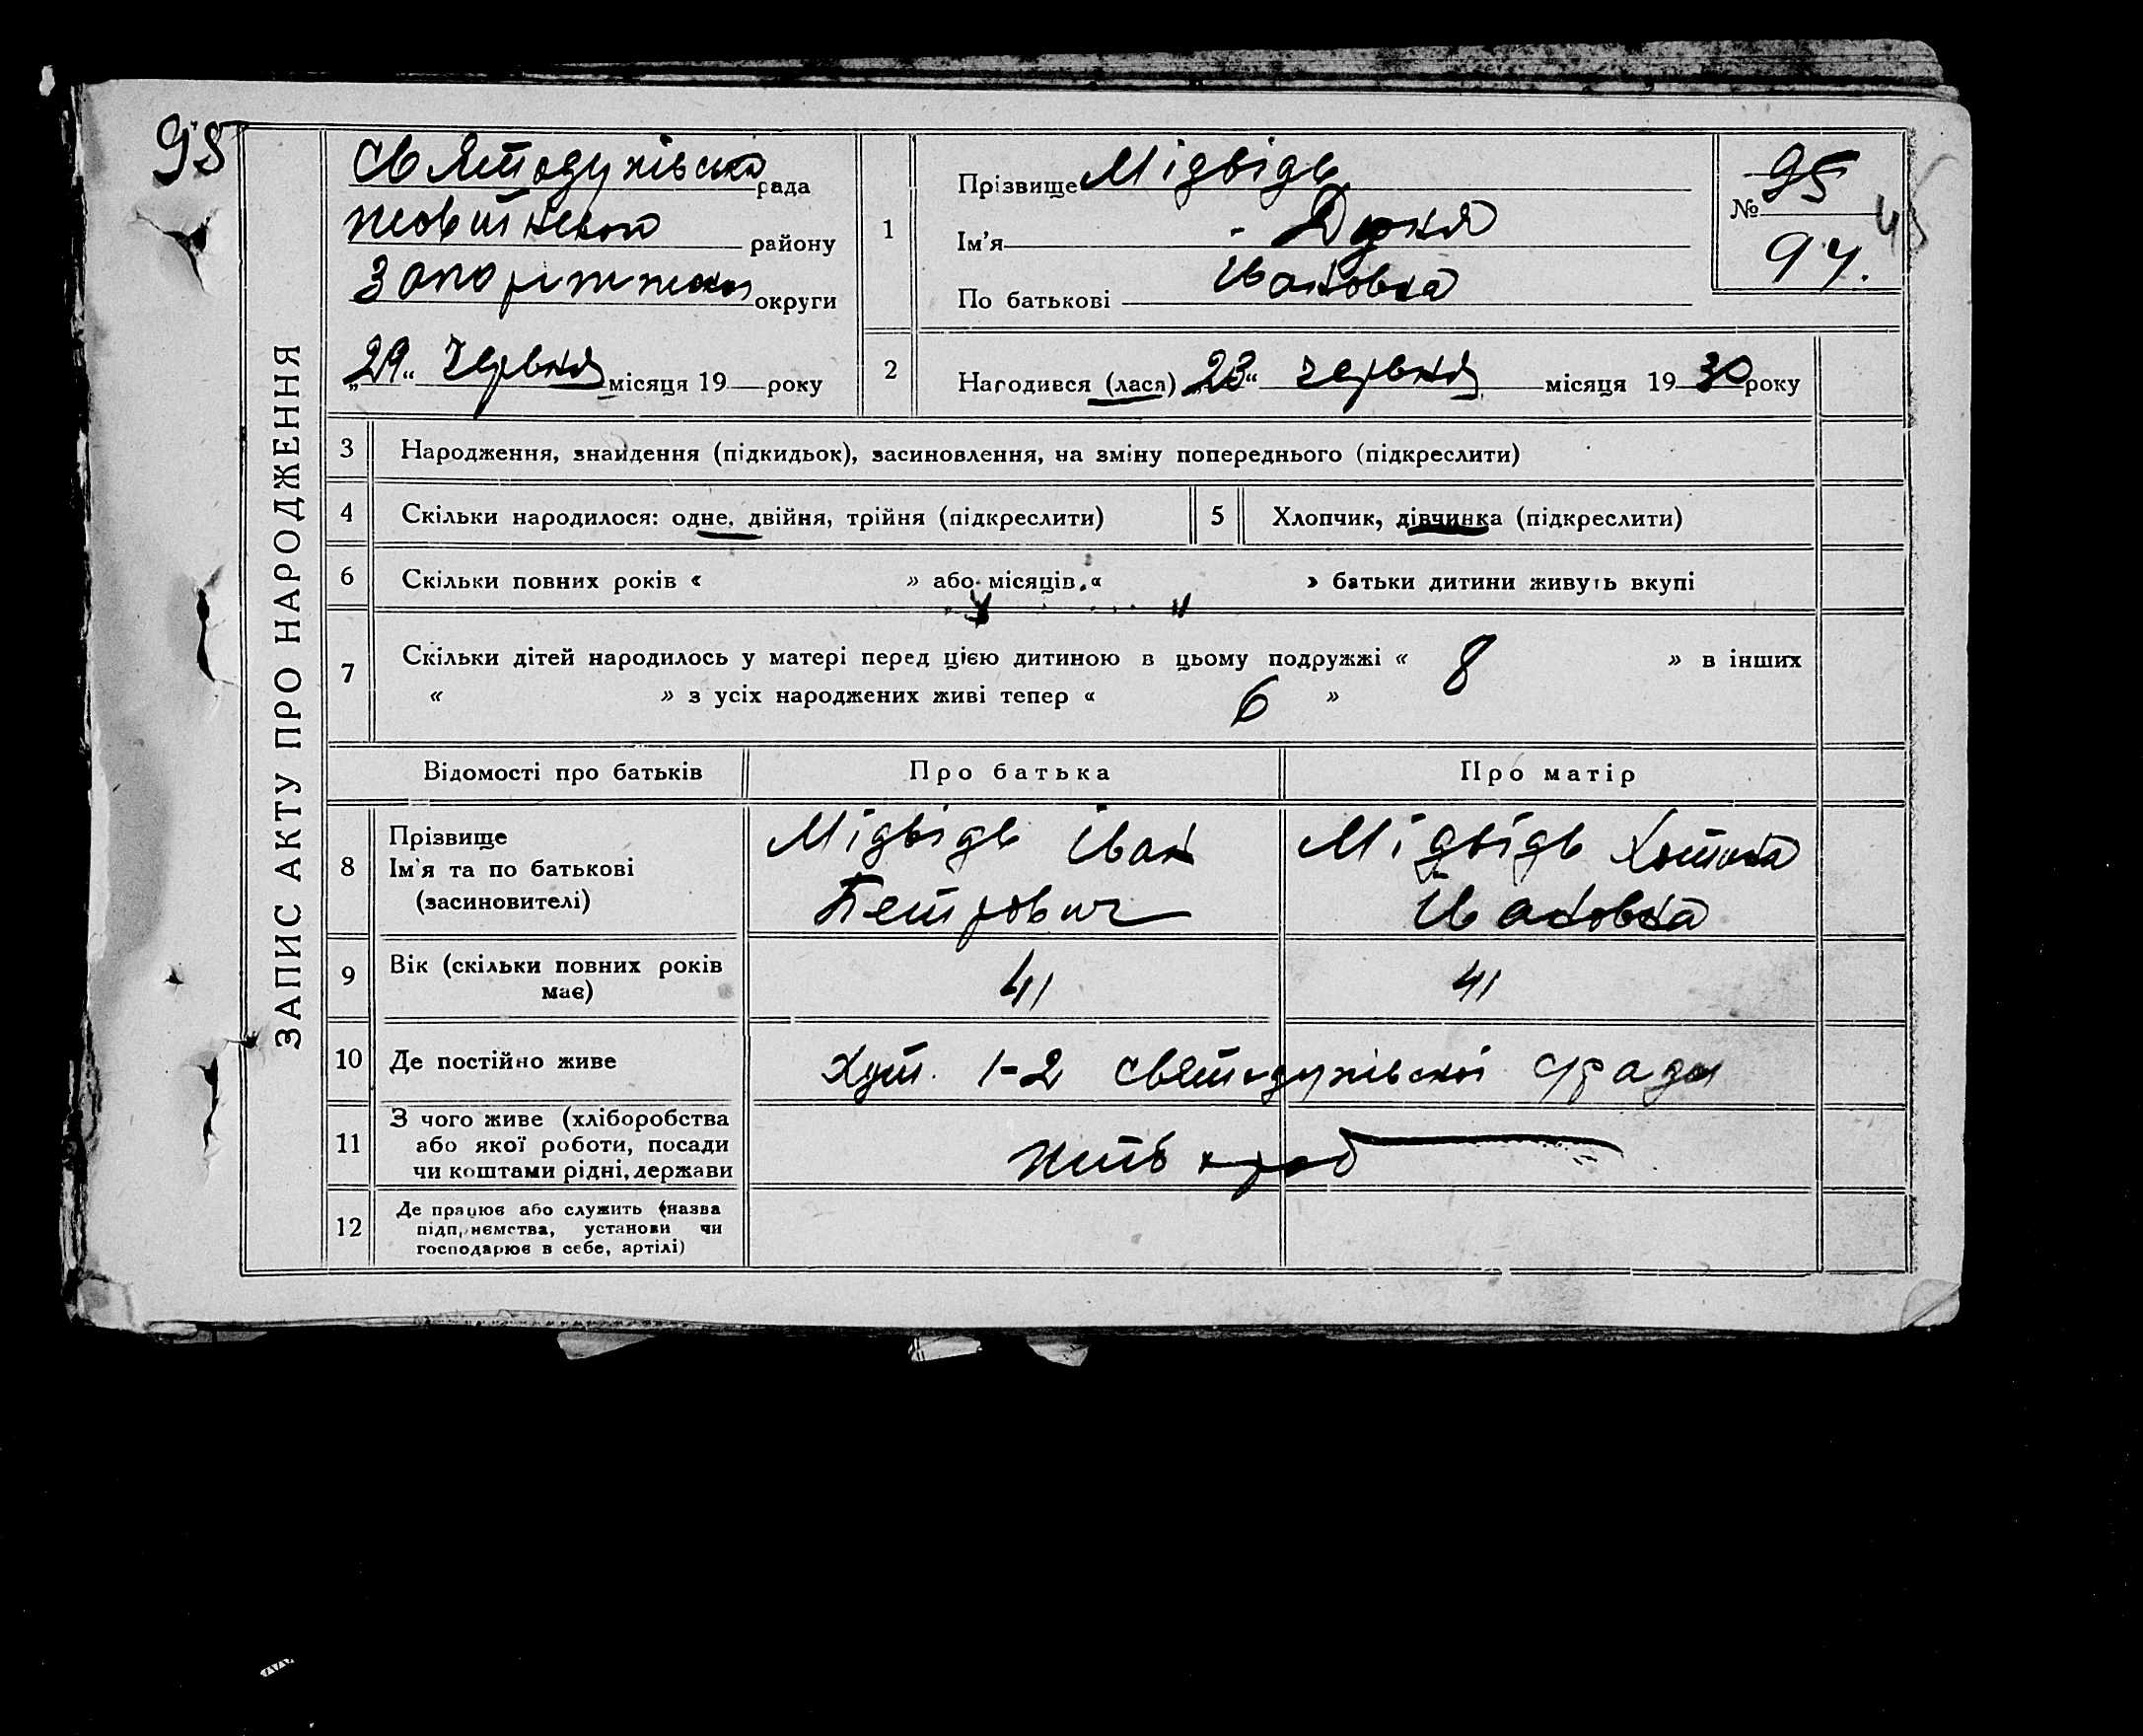 95
ЗАПИС АКТУ ПРО НАРОДЖЕННЯ
Святодухівська рада
району
округи
„29“ Червня місяця 19 року
1
Прізвище Мідвідь
Ім'я Дуня
По батькові Івановна
№ 95
94.
45
2
Народився (лася) „23“ червня місяця 1930 року
3 Народження, знайдення (підкидьок), засиновлення, на зміну попереднього (підкреслити)
4 Скільки народилося: одне, двійня, трійня (підкреслити)
5 Хлопчик, дівчинка (підкреслити)
6 Скільки повних років « » або місяців « » батьки дитини живуть вкупі
7 Скільки дітей народилось у матері перед цією дитиною в цьому подружжі « 8 » в інших
« » з усіх народжених живі тепер « 6 »
Відомості про батьків Про батька Про матір
8 Прізвище
Ім'я та по батькові
(засиновителі)
Мідвідь Іван
Петрович
Мідвідь
Івановна
9 Вік (скільки повних років
має)
41 41
10 Де постійно живе Хут. 1-2 Святодухівської с/ради
11 З чого живе (хліборобства
або якої роботи, посади
чи коштами рідні, держави
хлібороб
12 Де працює або служить (назва
підприємства, установи чи
господарює в себе, артілі)